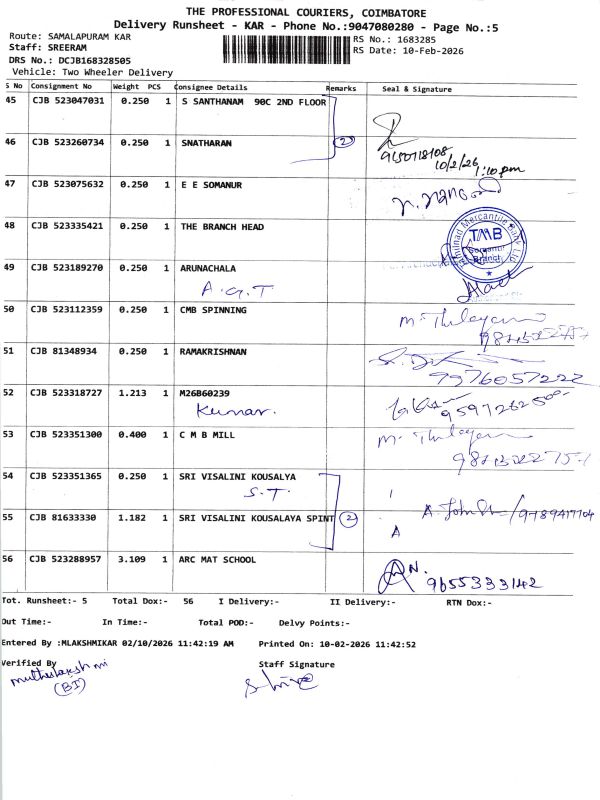 THE PROFESSIONAL COURIERS, COIMBATORE
Delivery Runsheet - KAR - Phone No.:9047080280 - Page No.:5
Route: SAMALAPURAM KAR RS No.: 1683285
Staff: SREERAM RS Date: 10-Feb-2026
DRS No.: DCJB168328505
Vehicle: Two Wheeler Delivery
S No Consignment No Weight PCS Consignee Details Remarks Seal & Signature
45 CJB 523047031 0.250 1 S SANTHANAM 90C 2ND FLOOR
46 CJB 523260734 0.250 1 SNATHARAN 2
10/2/26
1:10 pm
47 CJB 523075632 0.250 1 E E SOMANUR
48 CJB 523335421 0.250 1 THE BRANCH HEAD
Tamilnad Mercantile Bank Ltd
TMB
Branch
49 CJB 523189270 0.250 1 ARUNACHALA
A.G.T
50 CJB 523112359 0.250 1 CMB SPINNING
51 CJB 81348934 0.250 1 RAMAKRISHNAN
9976057222
52 CJB 523318727 1.213 1 M26B60239
Kumar.
53 CJB 523351300 0.400 1 C M B MILL
54 CJB 523351365 0.250 1 SRI VISALINI KOUSALYA
S.T.
55 CJB 81633330 1.182 1 SRI VISALINI KOUSALAYA SPINT 2
A
56 CJB 523288957 3.109 1 ARC MAT SCHOOL
9655333142
Tot. Runsheet:- 5 Total Dox:- 56 I Delivery:- II Delivery:- RTN Dox:-
Out Time:- In Time:- Total POD:- Delvy Points:-
Entered By :MLAKSHMIKAR 02/10/2026 11:42:19 AM Printed On: 10-02-2026 11:42:52
Verified By Staff Signature
Muthulakshmi
(BI)